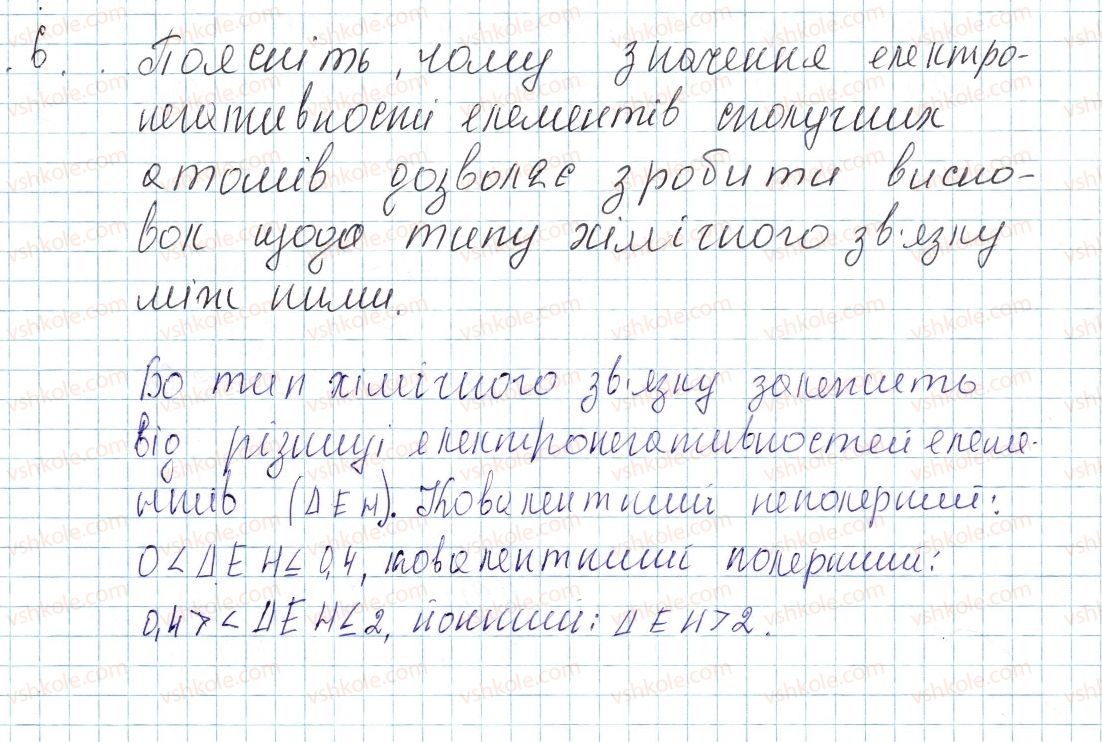 6. Поясніть, чому значення електро-
негативності елементів сполучних
атомів дозволяє зробити висно-
вок щодо типу хімічного зв'язку
між ними.
Бо тип хімічного зв'язку залежить
від різниці електронегативностей елеме-
нтів (ΔЕН). Ковалентний неполярний:
0 < ΔЕН ≤ 0,4, ковалентний полярний:
0,4 > < ΔЕН ≤ 2, йонний: ΔЕН > 2.